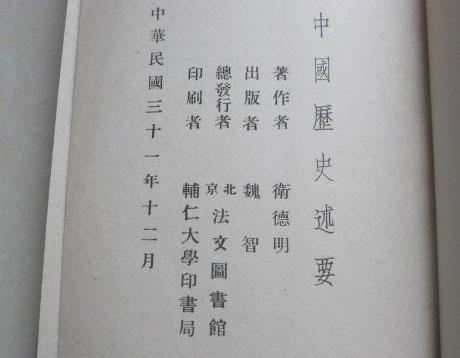 中國歷史述要
著作者 衛德明
出版者 魏智
總發行者 北京法文圖書館
印刷者 輔仁大學印書局
中華民國三十一年十二月